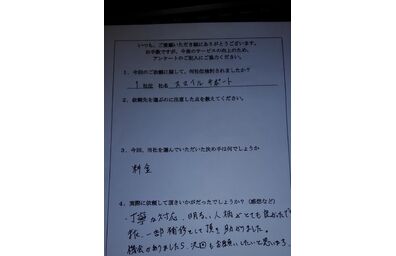 いつも、ご愛顧いただき誠にありがとうございます。
お手数ですが、今後のサービスの向上のため、
アンケートのご記入にご協力ください。
1．今回のご依頼に際して、何社位検討されましたか？
1 社位 社名 スマイルサポート
2．依頼先を選ぶのに注意した点を教えてください。
3．今回、当社を選んでいただいた決め手は何でしょうか
料金
4．実際に依頼して頂きいかがだったでしょうか？（感想など）
・丁寧な対応、明るい人柄がとても良かったです
一部補修をして頂き助かりました。
機会がありましたら、次回もお願いしたいと思います。